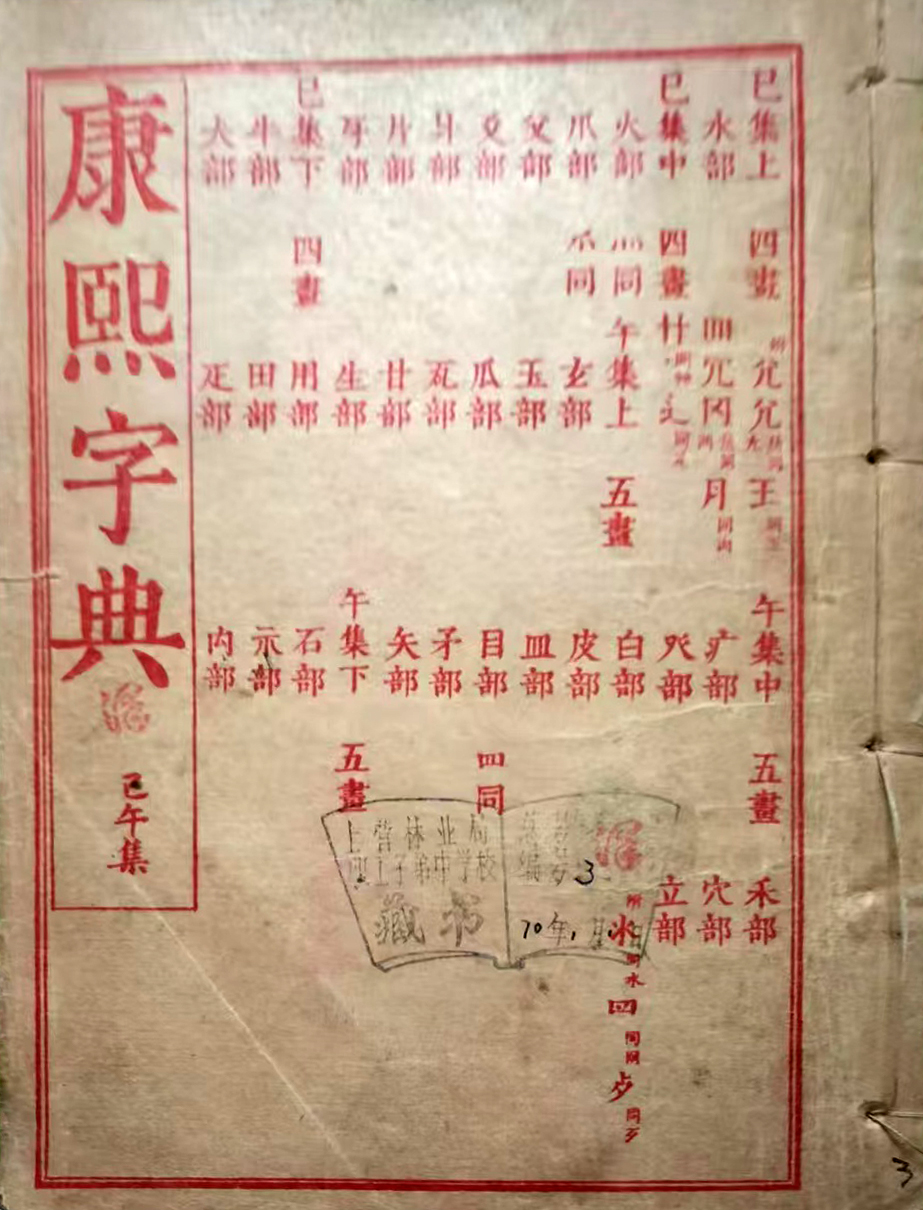 巳集上 四畫
水部
巳集中 四畫
火部 灬同
爪部 爫同
父部
爻部
爿部
片部
牙部
巳集下 四畫
牛部
犬部
王
月
午集上 五畫
玄部
玉部
瓜部
瓦部
甘部
生部
用部
田部
疋部
午集中 五畫
疒部
癶部
白部
皮部
皿部
目部 罒同
矛部
矢部
午集下 五畫
石部
示部
禸部
禾部
穴部
立部
附氺同水罒同网歺同歹
康熙字典
巳午集
上营林业局
职工子弟中学校
藏书
编号 3
70年1月 日
3